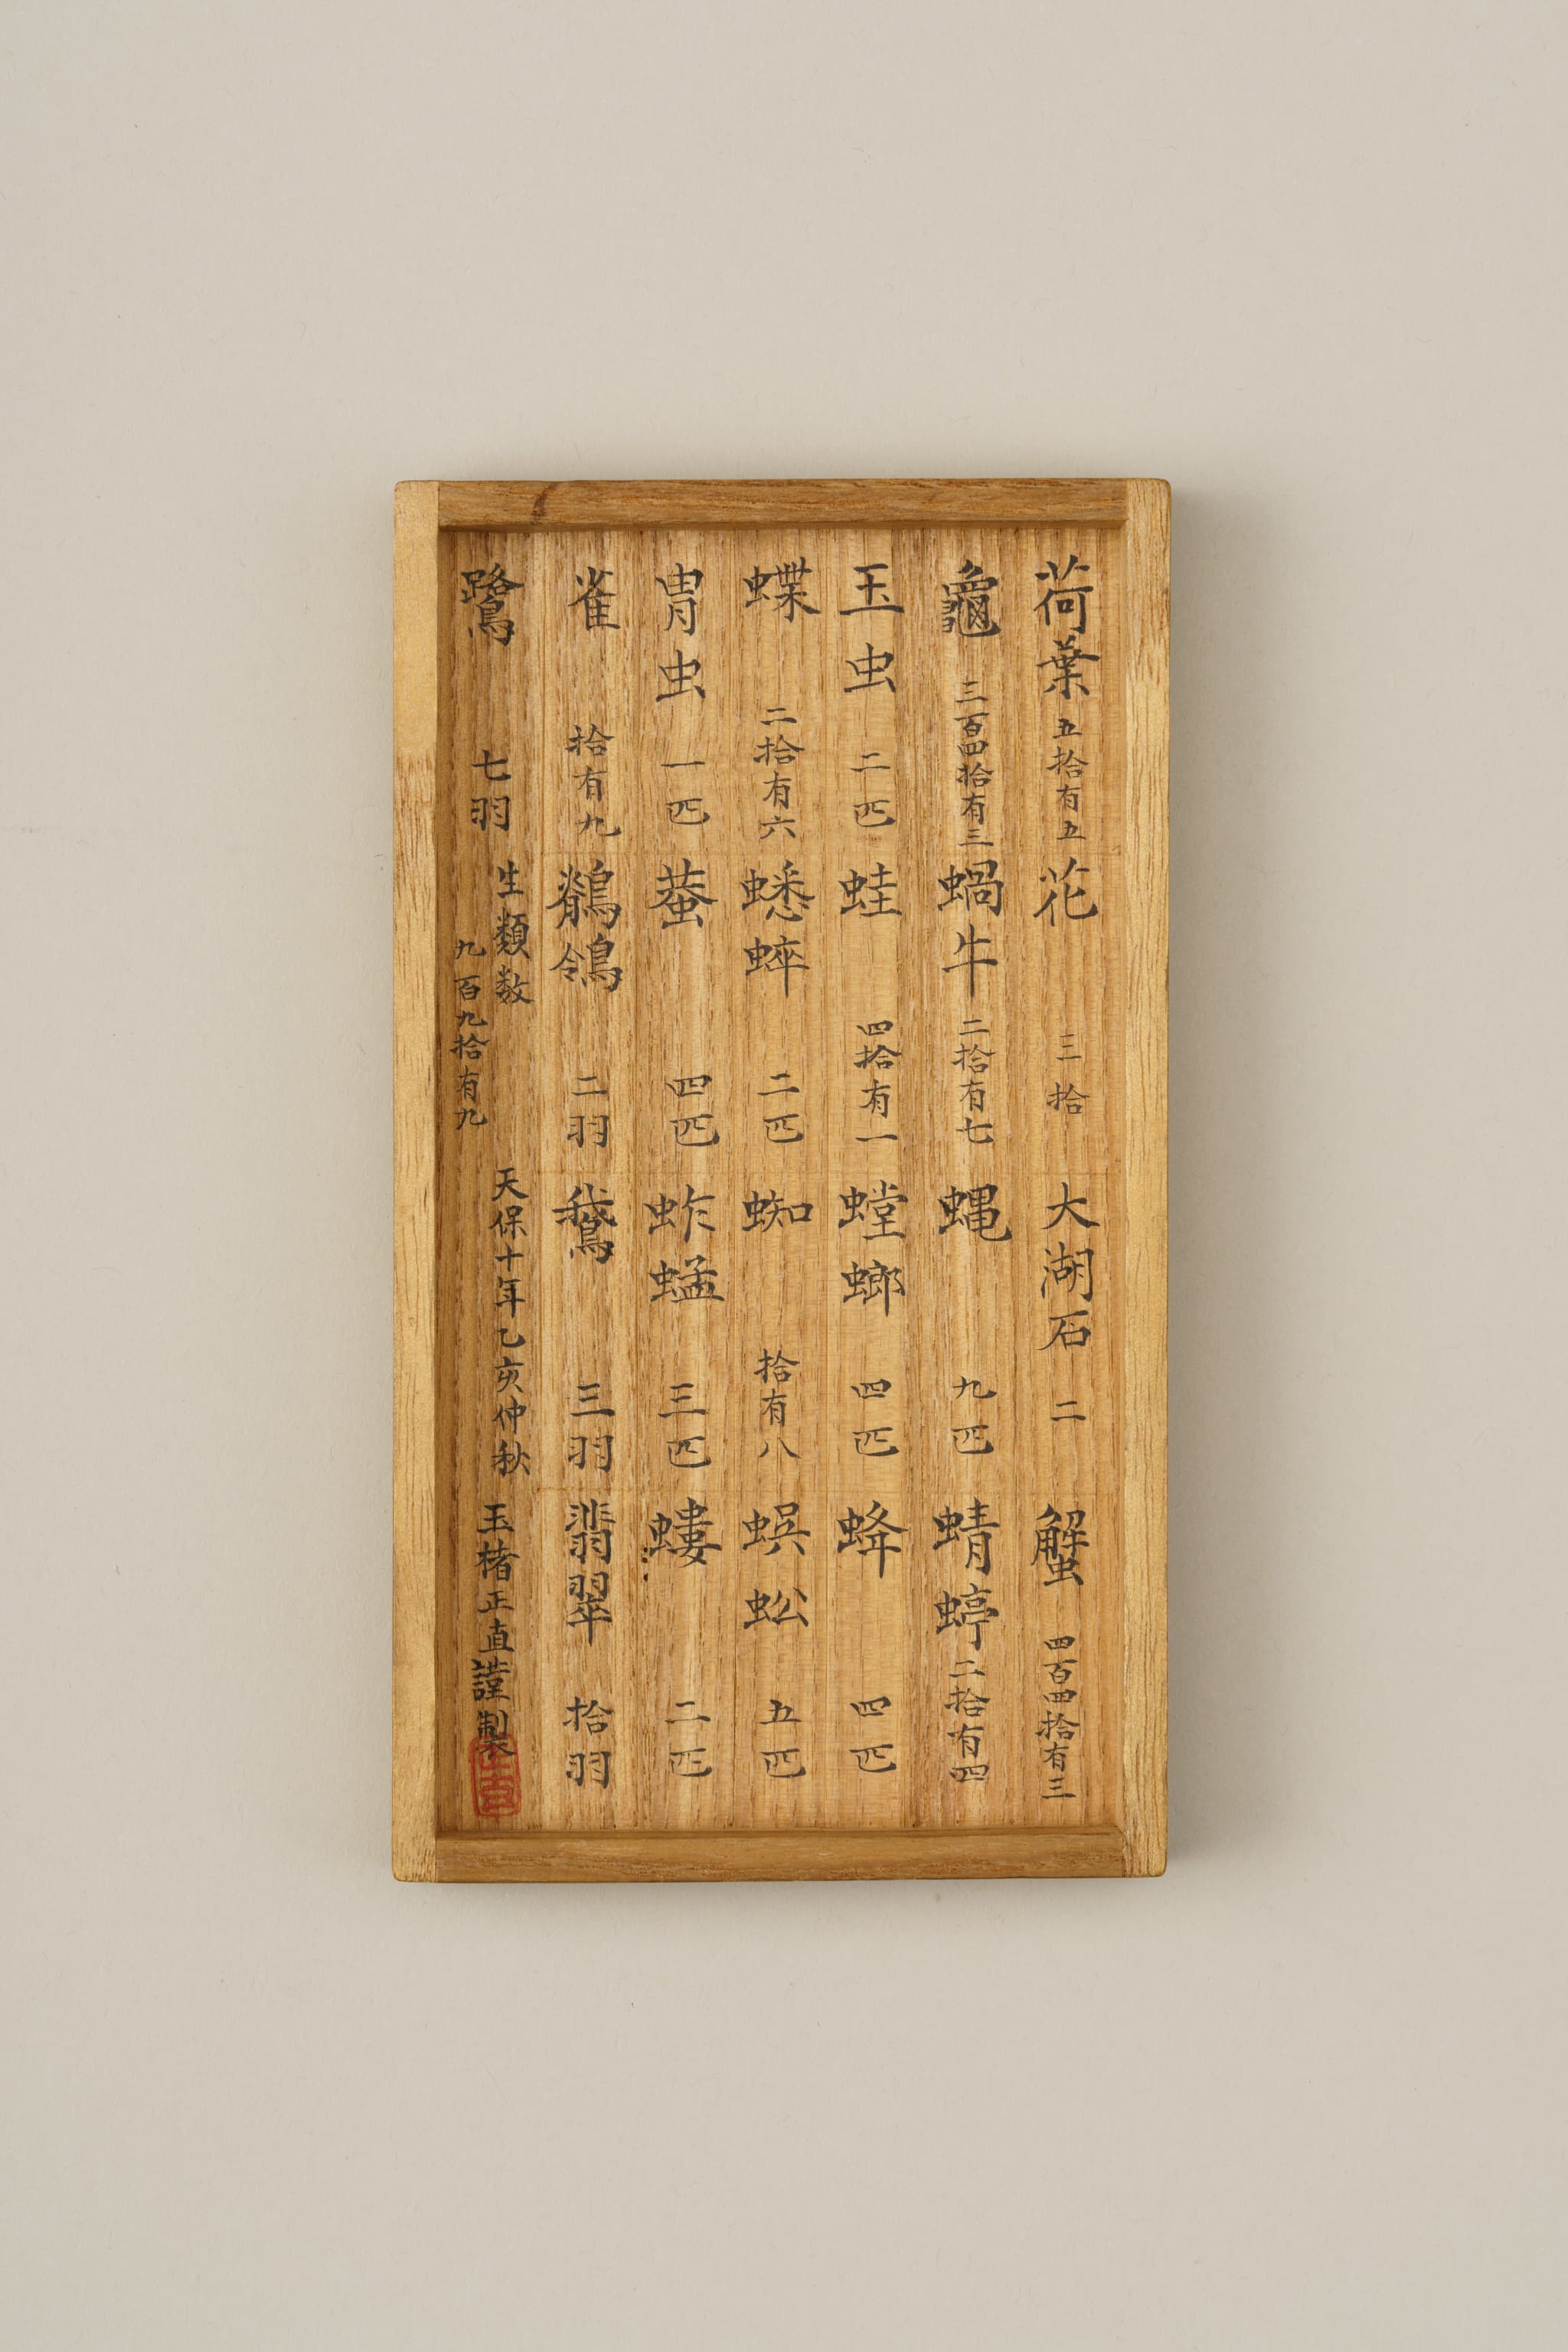 荷葉 五拾有五 花 三拾 大湖石 二 蟹 四百四拾有三
龜 三百四拾有三 蝸牛 二拾有七 蝿 九匹 蜻蝏 二拾有四
玉虫 二匹 蛙 四拾有一 螳螂 四匹 蜂 四匹
蝶 二拾有六 蟋蜶 二匹 蜘 拾有八 蜈蚣 五匹
冑虫 一匹 四匹 蚱蜢 三匹 螻 二匹
雀 拾有九 鶺鴒 二羽 鵞 三羽 翡翠 拾羽
鷺 七羽
生類数
九百九拾有九
天保十年乙亥仲秋
玉楮正直謹製